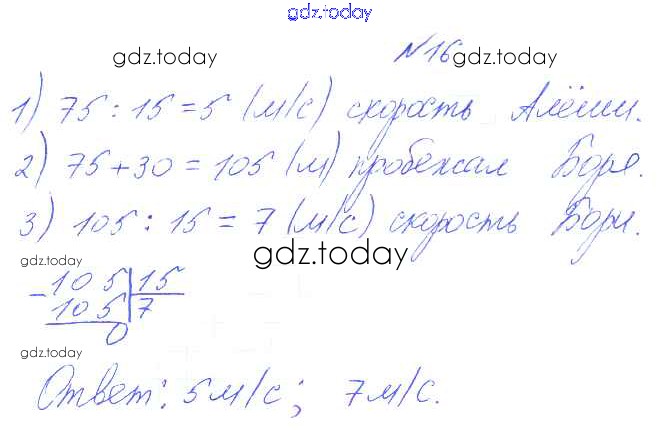 gdz.today
gdz.today №16 gdz.today
1) 75 : 15 = 5 (м/с) скорость Алёши.
2) 75 + 30 = 105 (м) пробежал Боря.
3) 105 : 15 = 7 (м/с) скорость Бори.
gdz.today gdz.today
- 105 | 15
105 | 7
0
gdz.today
Ответ: 5 м/с; 7 м/с.